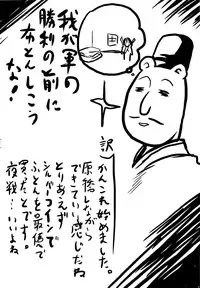 我が軍の
勝利の前に
布とんしこう
な!
訳)かんこれ始めました。
原稿しながら
できていい感じだね
とりあえず
シルバーコインで
ふとんを最優で
買ったとです!
夜戦…いいよね